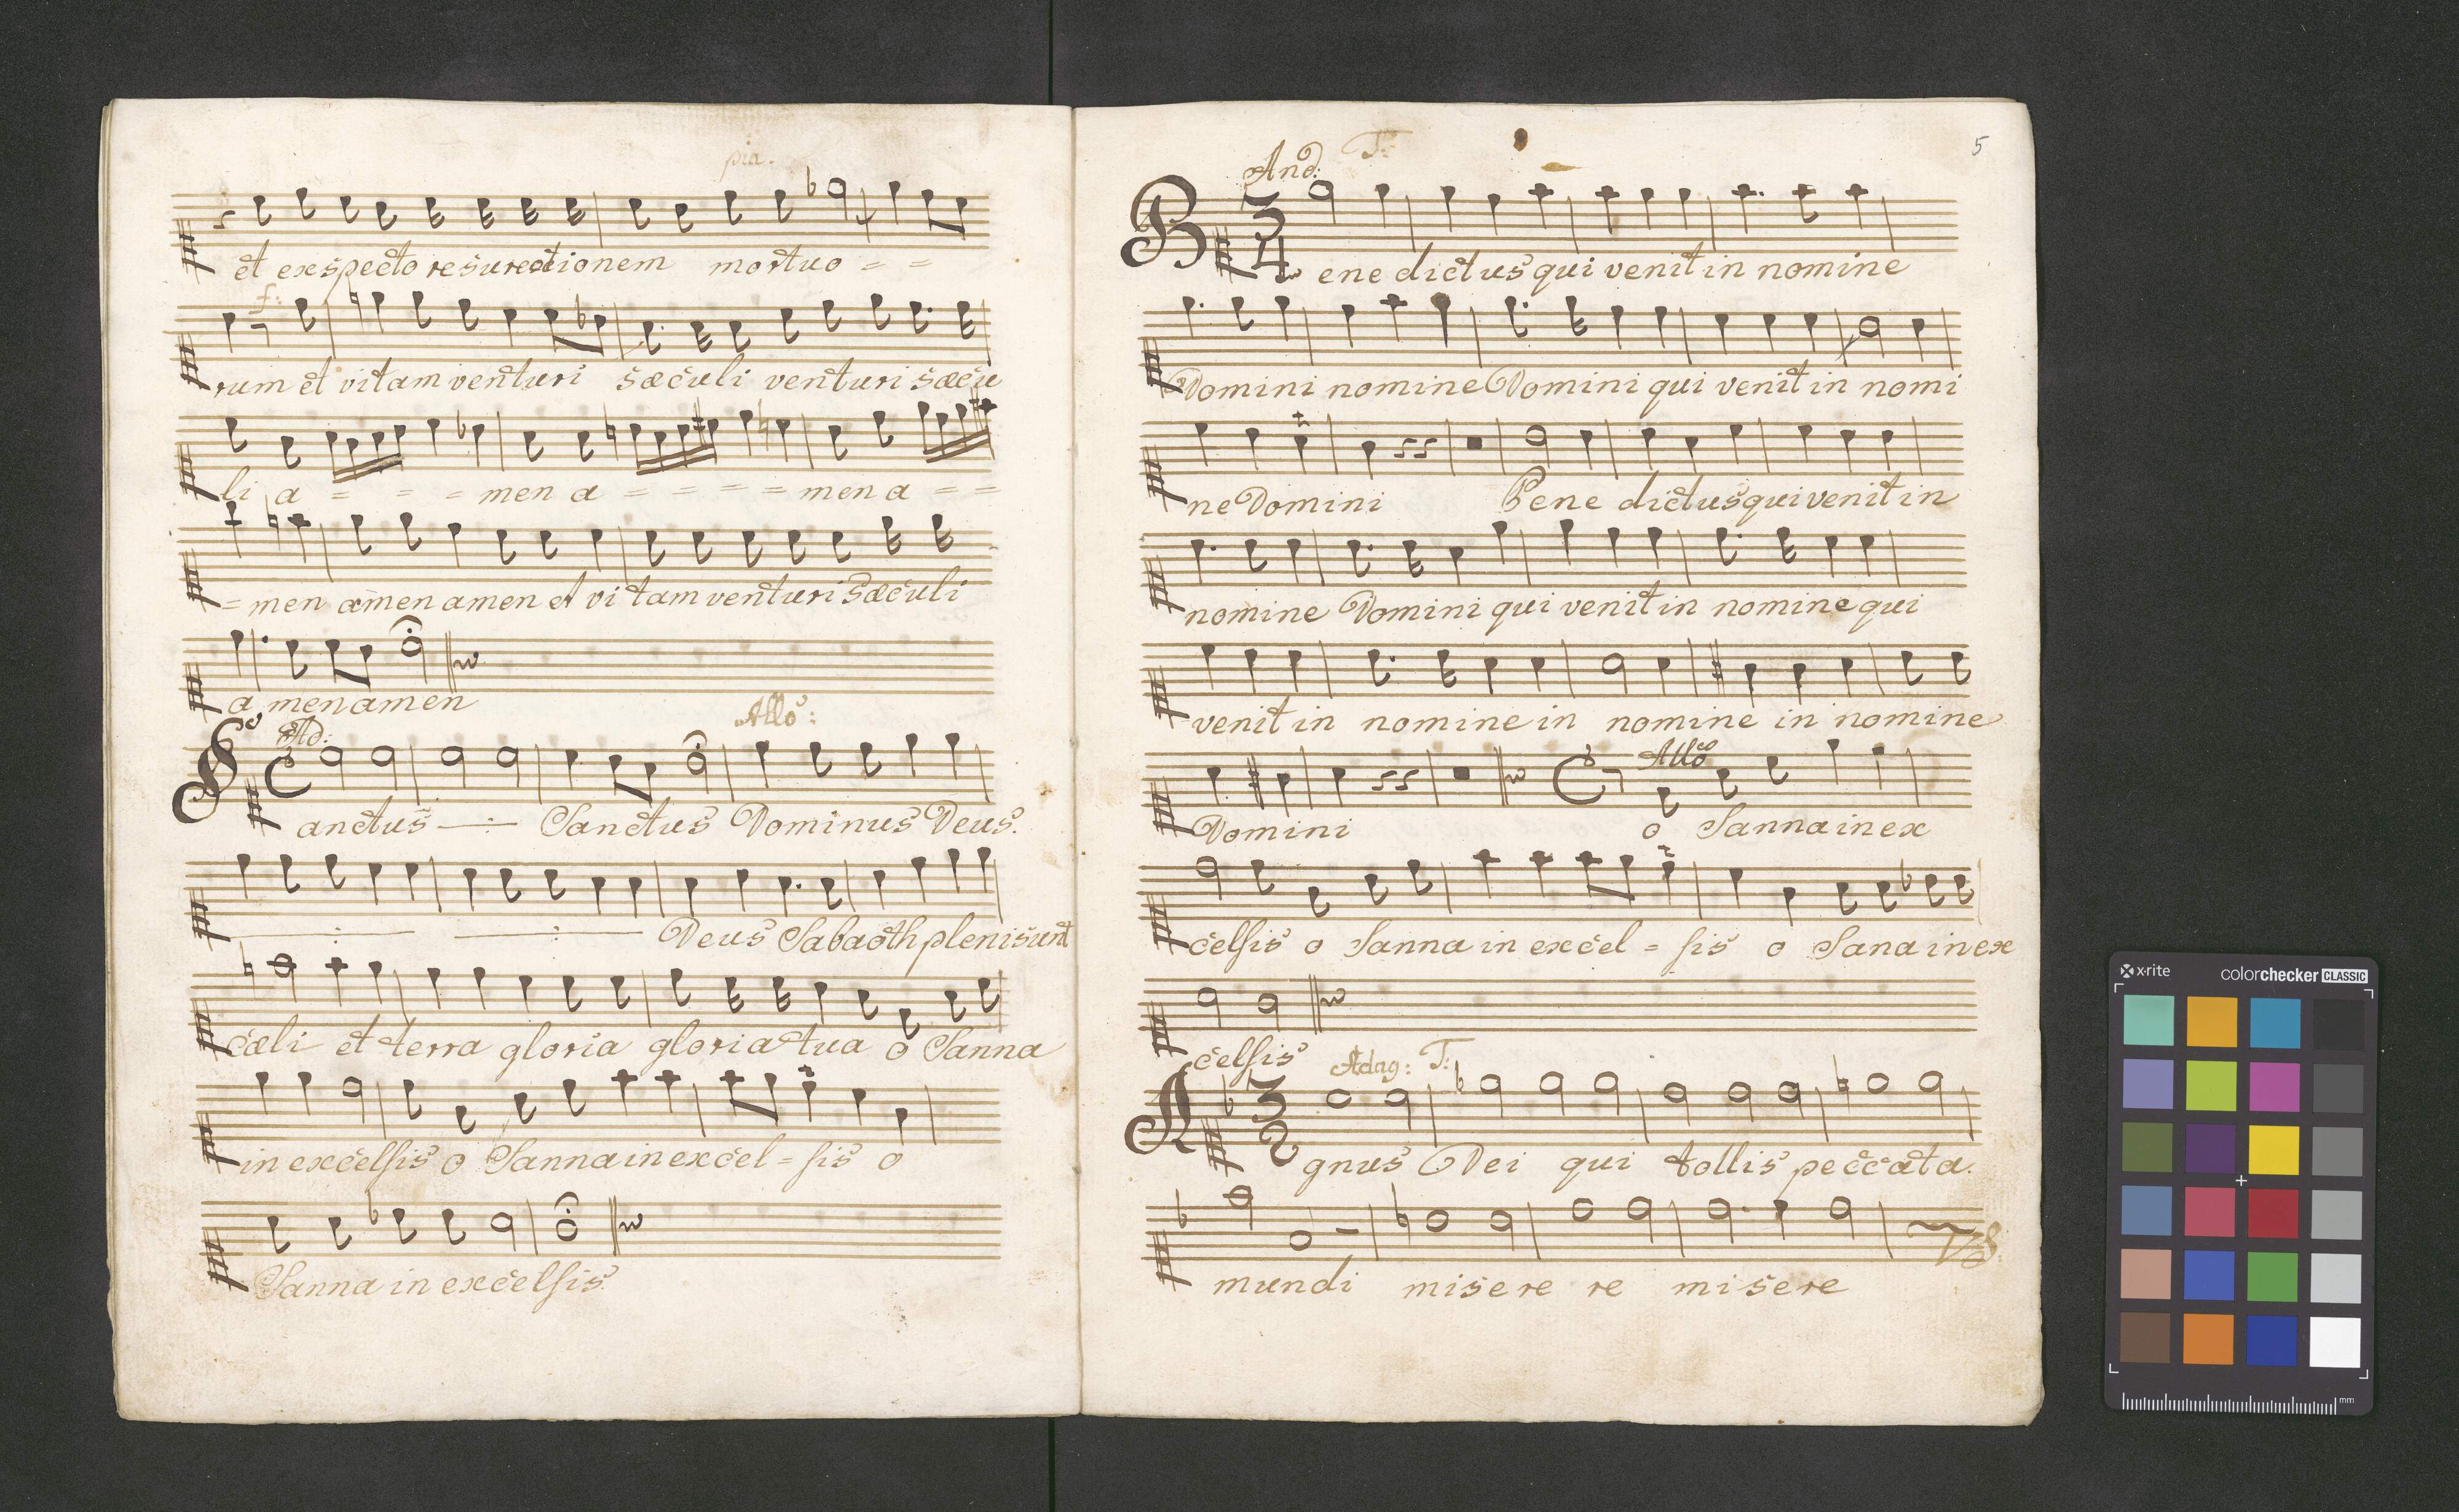 pia.
et exspecto resurectionem mortuo = =
f:
rum et vitam venturi sæculi venturi sæcu
li a = = = men a = = = = men a = =
= men amen amen et vi tam venturi Sæculi
a men amen
Ad: Allo:
Sanctus —:— Sanctus Dominus Deus.
—:— —:— Deus Sabaoth pleni sunt
cæli et terra gloria gloria tua o Sanna
in excelsis o Sanna in excel = sis o
Sanna in excelsis.
5
And: T:
3
4
Bene dictus qui venit in nomine
Domini nomine Domini qui venit in nomi
ne Domini Bene dictus qui venit in
nomine Domini qui venit in nomine qui
venit in nomine in nomine in nomine
Allo
Domini o Sanna in ex
celsis o Sanna in excel = sis o Sana in ex
celsis
Adag: T:
3
2
Agnus Dei qui tollis peccata.
mundi misere re misere
x·rite colorchecker CLASSIC
mm